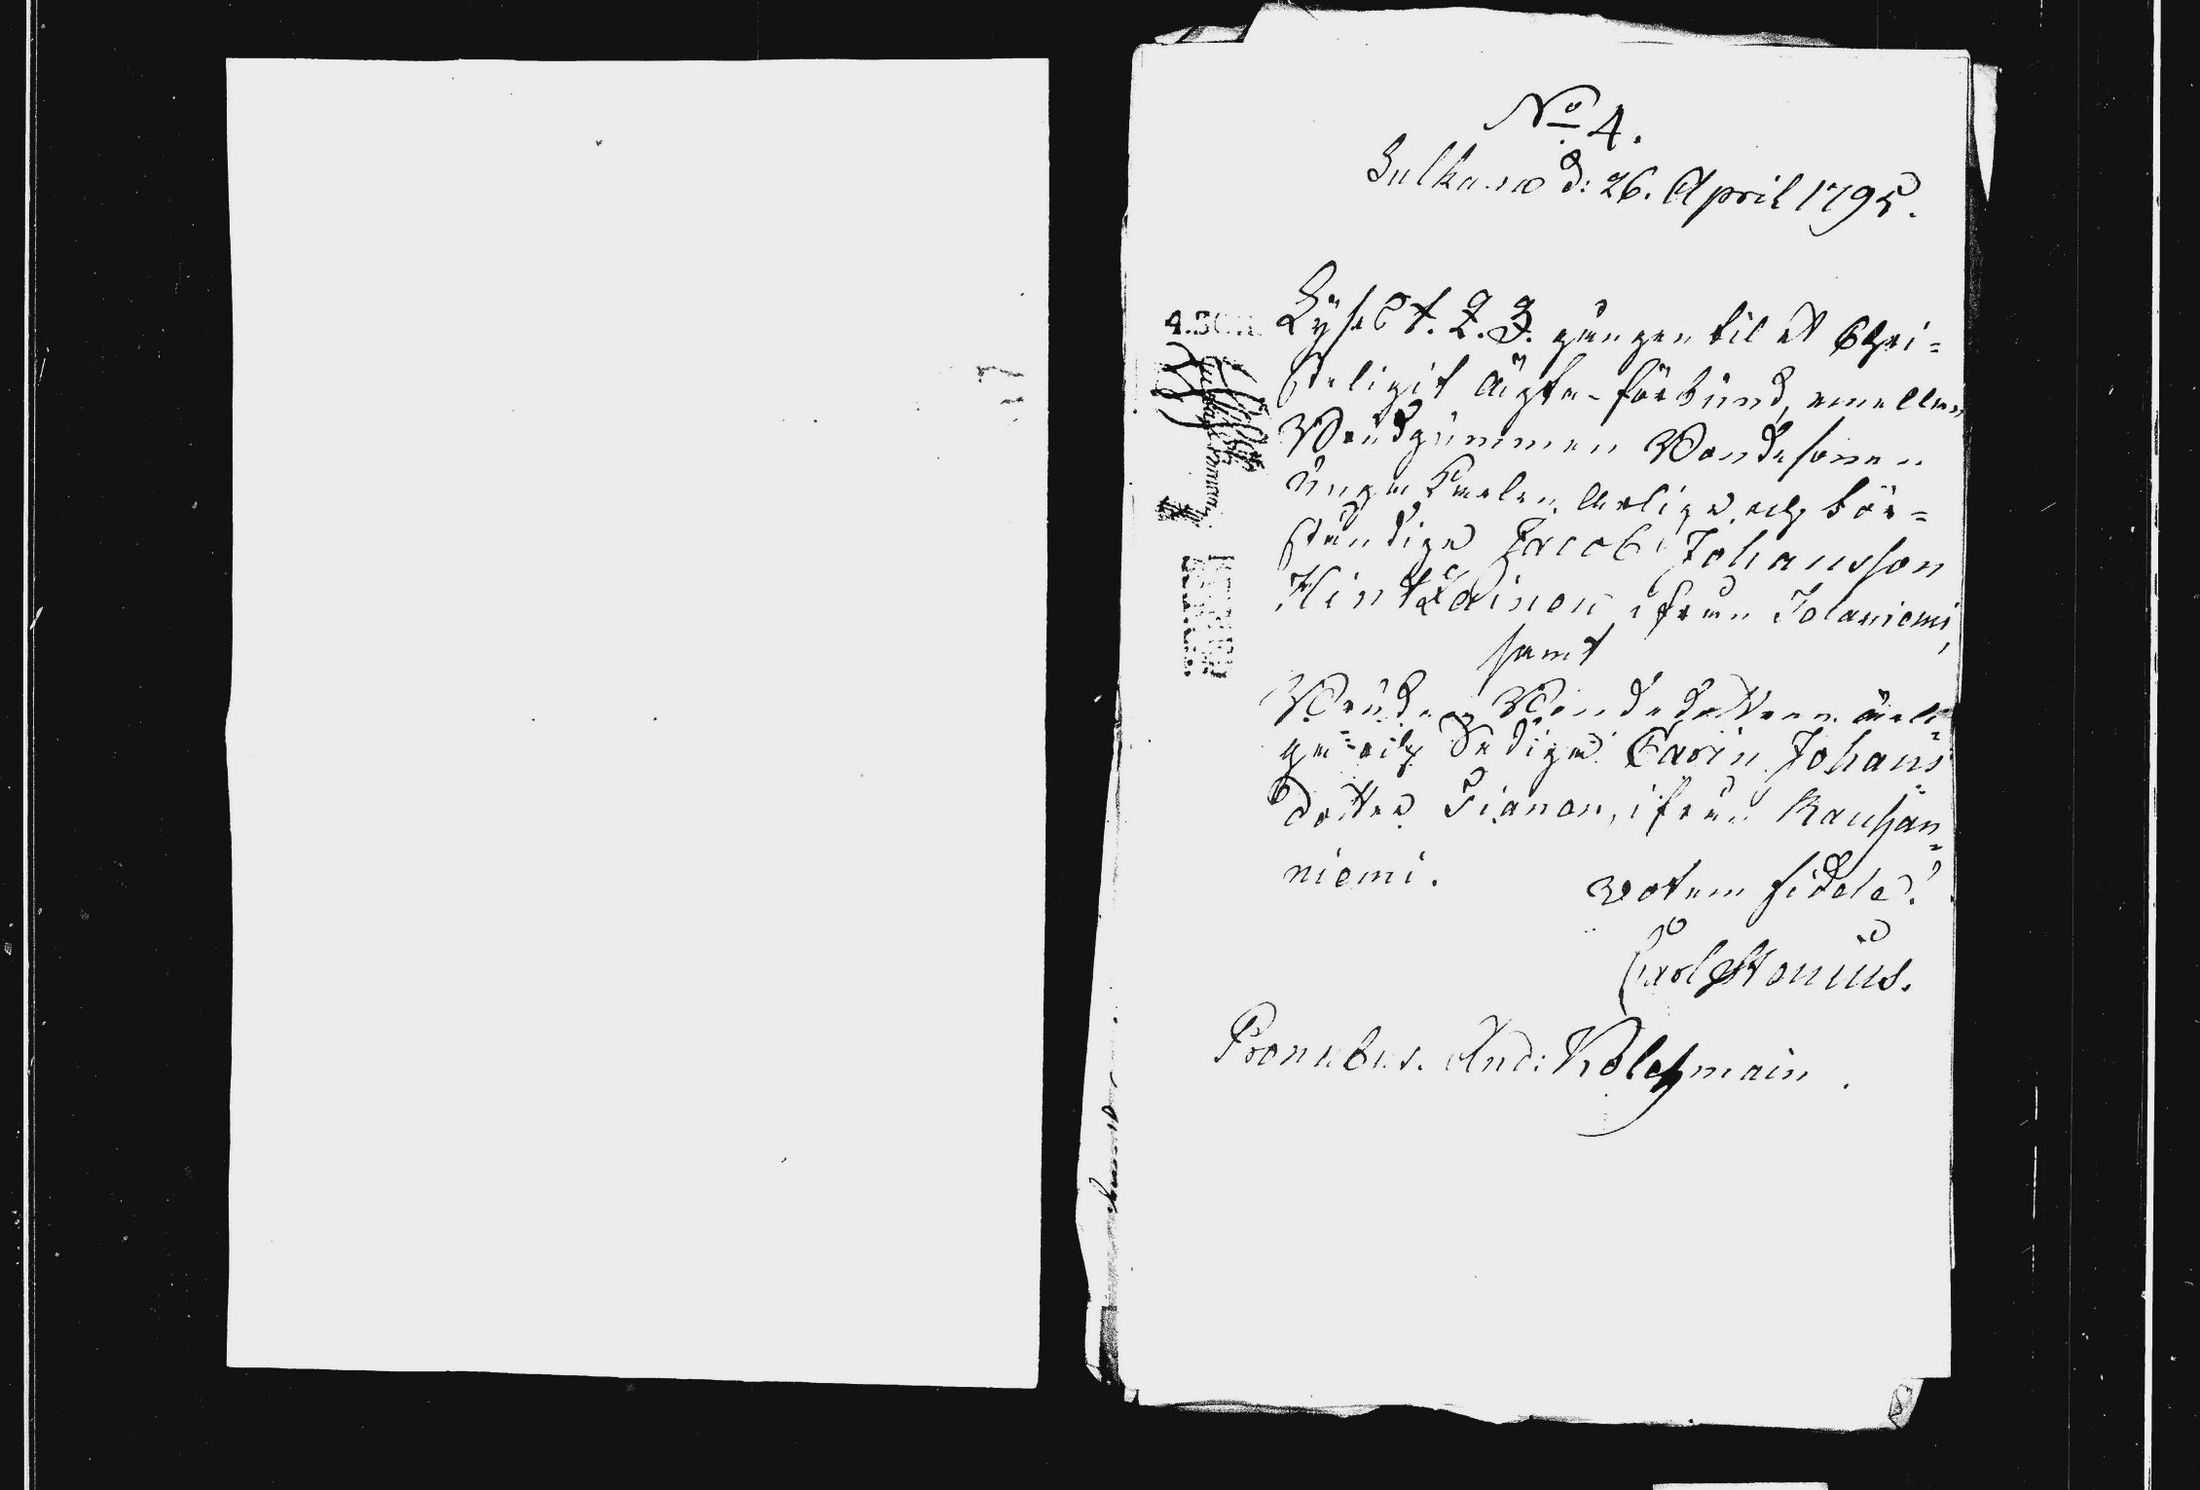 No 4.
Sulkava d: 26. April 1795.
Lyses 1. 2. 3. gången til et Chri=
steligit Ägta-förbund, emellan
Brudgummen Bondesonen
unga Karlen ärlige och för=
ståndige Jacob Johansson
Hintzainen ifrån Tolaniemi,
samt
Bruden Bondedottren ärli=
ga och Sediga Carin Johans
dotter Pianon, ifrån Rauhan=
niemi.
votum fidele!
Carl Stenius.
Pronubus. And: Kolehmain